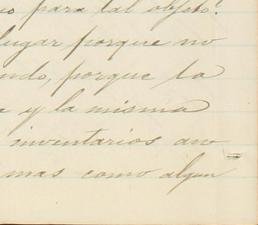 para tal objeto.
lugar porque no
ndo, porque la
y la misma
inventarios ano
mas como algun